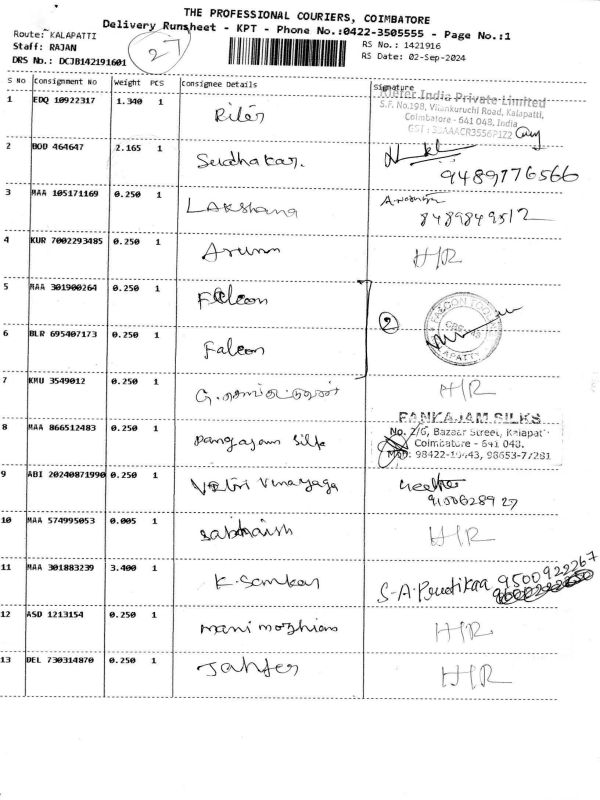 THE PROFESSIONAL COURIERS, COIMBATORE
Delivery Runsheet - KPT - Phone No.:0422-3505555 - Page No.:1
Route: KALAPATTI
Staff: RAJAN
DRS No.: DCJB142191601
27
RS No.: 1421916
RS Date: 02-Sep-2024
S No Consignment No Weight PCS Consignee Details Signature
1 EDQ 10922317 1.340 1 Riter
Rieter India Private Limited
S.F. No.198, Vilankuruchi Road, Kalapatti,
Coimbatore - 641 048, India
GST : 33AAACR3556P1Z2
2 BOD 464647 2.165 1 Sudhakar.
9489776566
3 MAA 105171169 0.250 1 LAKshana
8489849512
4 KUR 7002293485 0.250 1 Arunn H/R
5 MAA 301900264 0.250 1 Falcon
2
FALCON TOOL
CBE-48
KALAPATTI
6 BLR 695407173 0.250 1 Falcon
7 KMU 3549012 0.250 1 H/R
8 MAA 866512483 0.250 1 Pangajam Silk
PANKAJAM SILKS
No. 2/6, Bazaar Street, Kalapatti
Coimbatore - 641 048.
MOB: 98422-10443, 98653-77281
9 ABI 20240871990 0.250 1 Vetri Vinayaga
9100628927
10 MAA 574995053 0.005 1 H/R
11 MAA 301883239 3.400 1 K. Sankar
9500922267
12 ASD 1213154 0.250 1 manimozhian H/R
13 DEL 730314870 0.250 1 Jahfer H/R